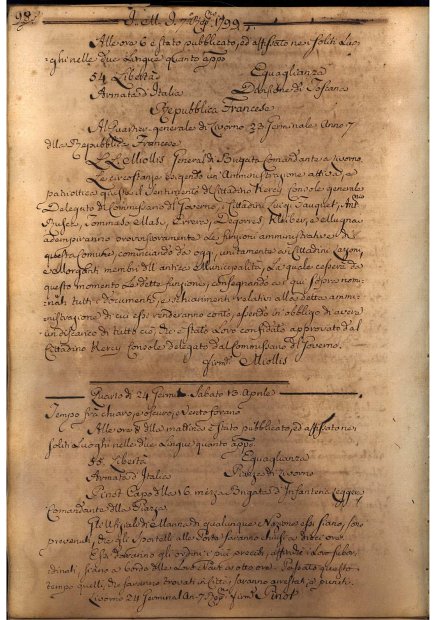 98.
J. M. J. 1799.
Alle ore 6 è stato pubblicato, ed affissato ne soliti Luo-
ghi nelle due Lingue quanto app.
54. Libertà Eguaglianza
Armata d'Italia Divisione di Toscana
Repubblica Francese
Al Quartier generale di Livorno 23 Germinale Anno 7
della Repubblica Francese
Miollis General di Brigata Comandante a Livorno.
Le circostanze esigendo un'Amministrazione attiva, e
patriottica giusta il sentimento del Cittadino Kercy Console generale
Delegato di Commissario di Governo, i Cittadini Luigi
Tommaso
adempiranno provvisoriamente le funzioni amministrative di
questa Comune, cominciando da oggi, unitamente ai Cittadini
e Morganti membri dell'antica Municipalità, la quale cesserà da
questo momento le dette funzioni, consegnando a i qui sopra nomi-
nati tutti i documenti, e schiarimenti relativi alla detta ammi-
nistrazione di cui essi renderanno conto, essendo in obbligo di avere
un discarico di tutto ciò, che è stato loro confidato approvato dal
Cittadino Kercy Console delegato dal Commissario di Governo.
firm. Miollis
Quarto dì 24 Germil. Sabato 13 Aprile
Tempo fra chiaro, e oscuro, e vento forano
Alle ore 8 della mattina è stato pubblicato, ed affissato ne
soliti Luoghi nelle due Lingue quanto app.
55. Libertà Eguaglianza
Armata d'Italia Piazza di Livorno
Pinot Capo della 16. mezza Brigata d'Infanteria Leggera
Comandante della Piazza
Gli Uffiziali di Marina di qualunque Nazione essi siano, sono
prevenuti, che gli Sportelli alle Porte saranno chiusi a dieci ore.
Essi daranno gli ordini i più precisi, affinchè i loro subor-
dinati siano a bordo delle loro Navi a otto ore. Passato questo
tempo quelli, che saranno trovati in Città, saranno arrestati, e puniti.
Livorno 24 Germinal An. 7. Rep. firm. Pinot